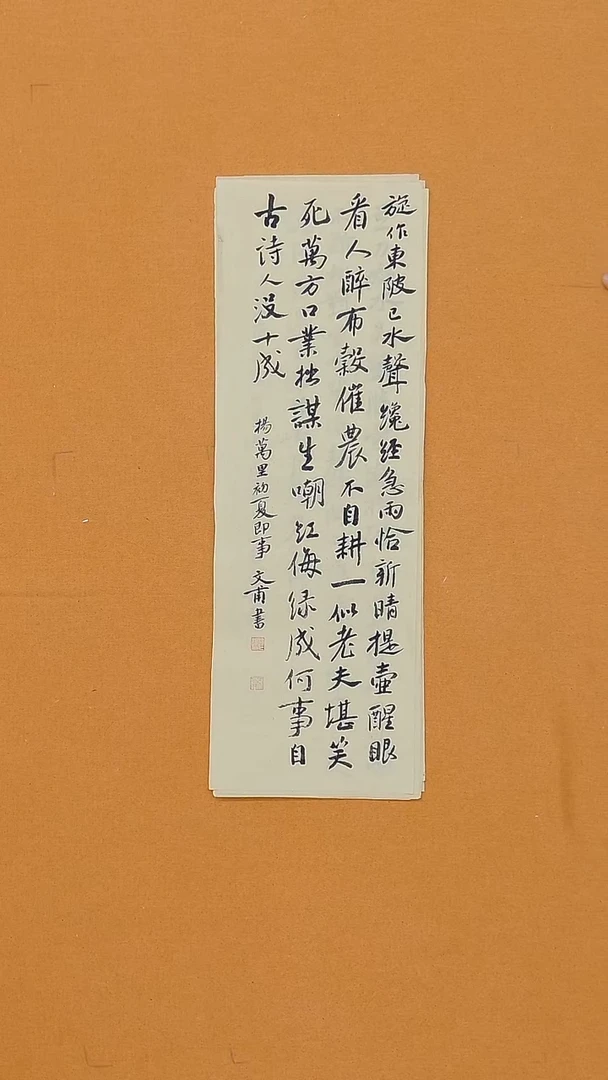 旋作東陂已水聲纔經急雨恰新晴提壺醒眼
看人醉布穀催農不自耕一似老夫堪笑
死萬方口業拙謀生嘲紅侮緑成何事自
古詩人没十成
楊萬里初夏即事 文甫書